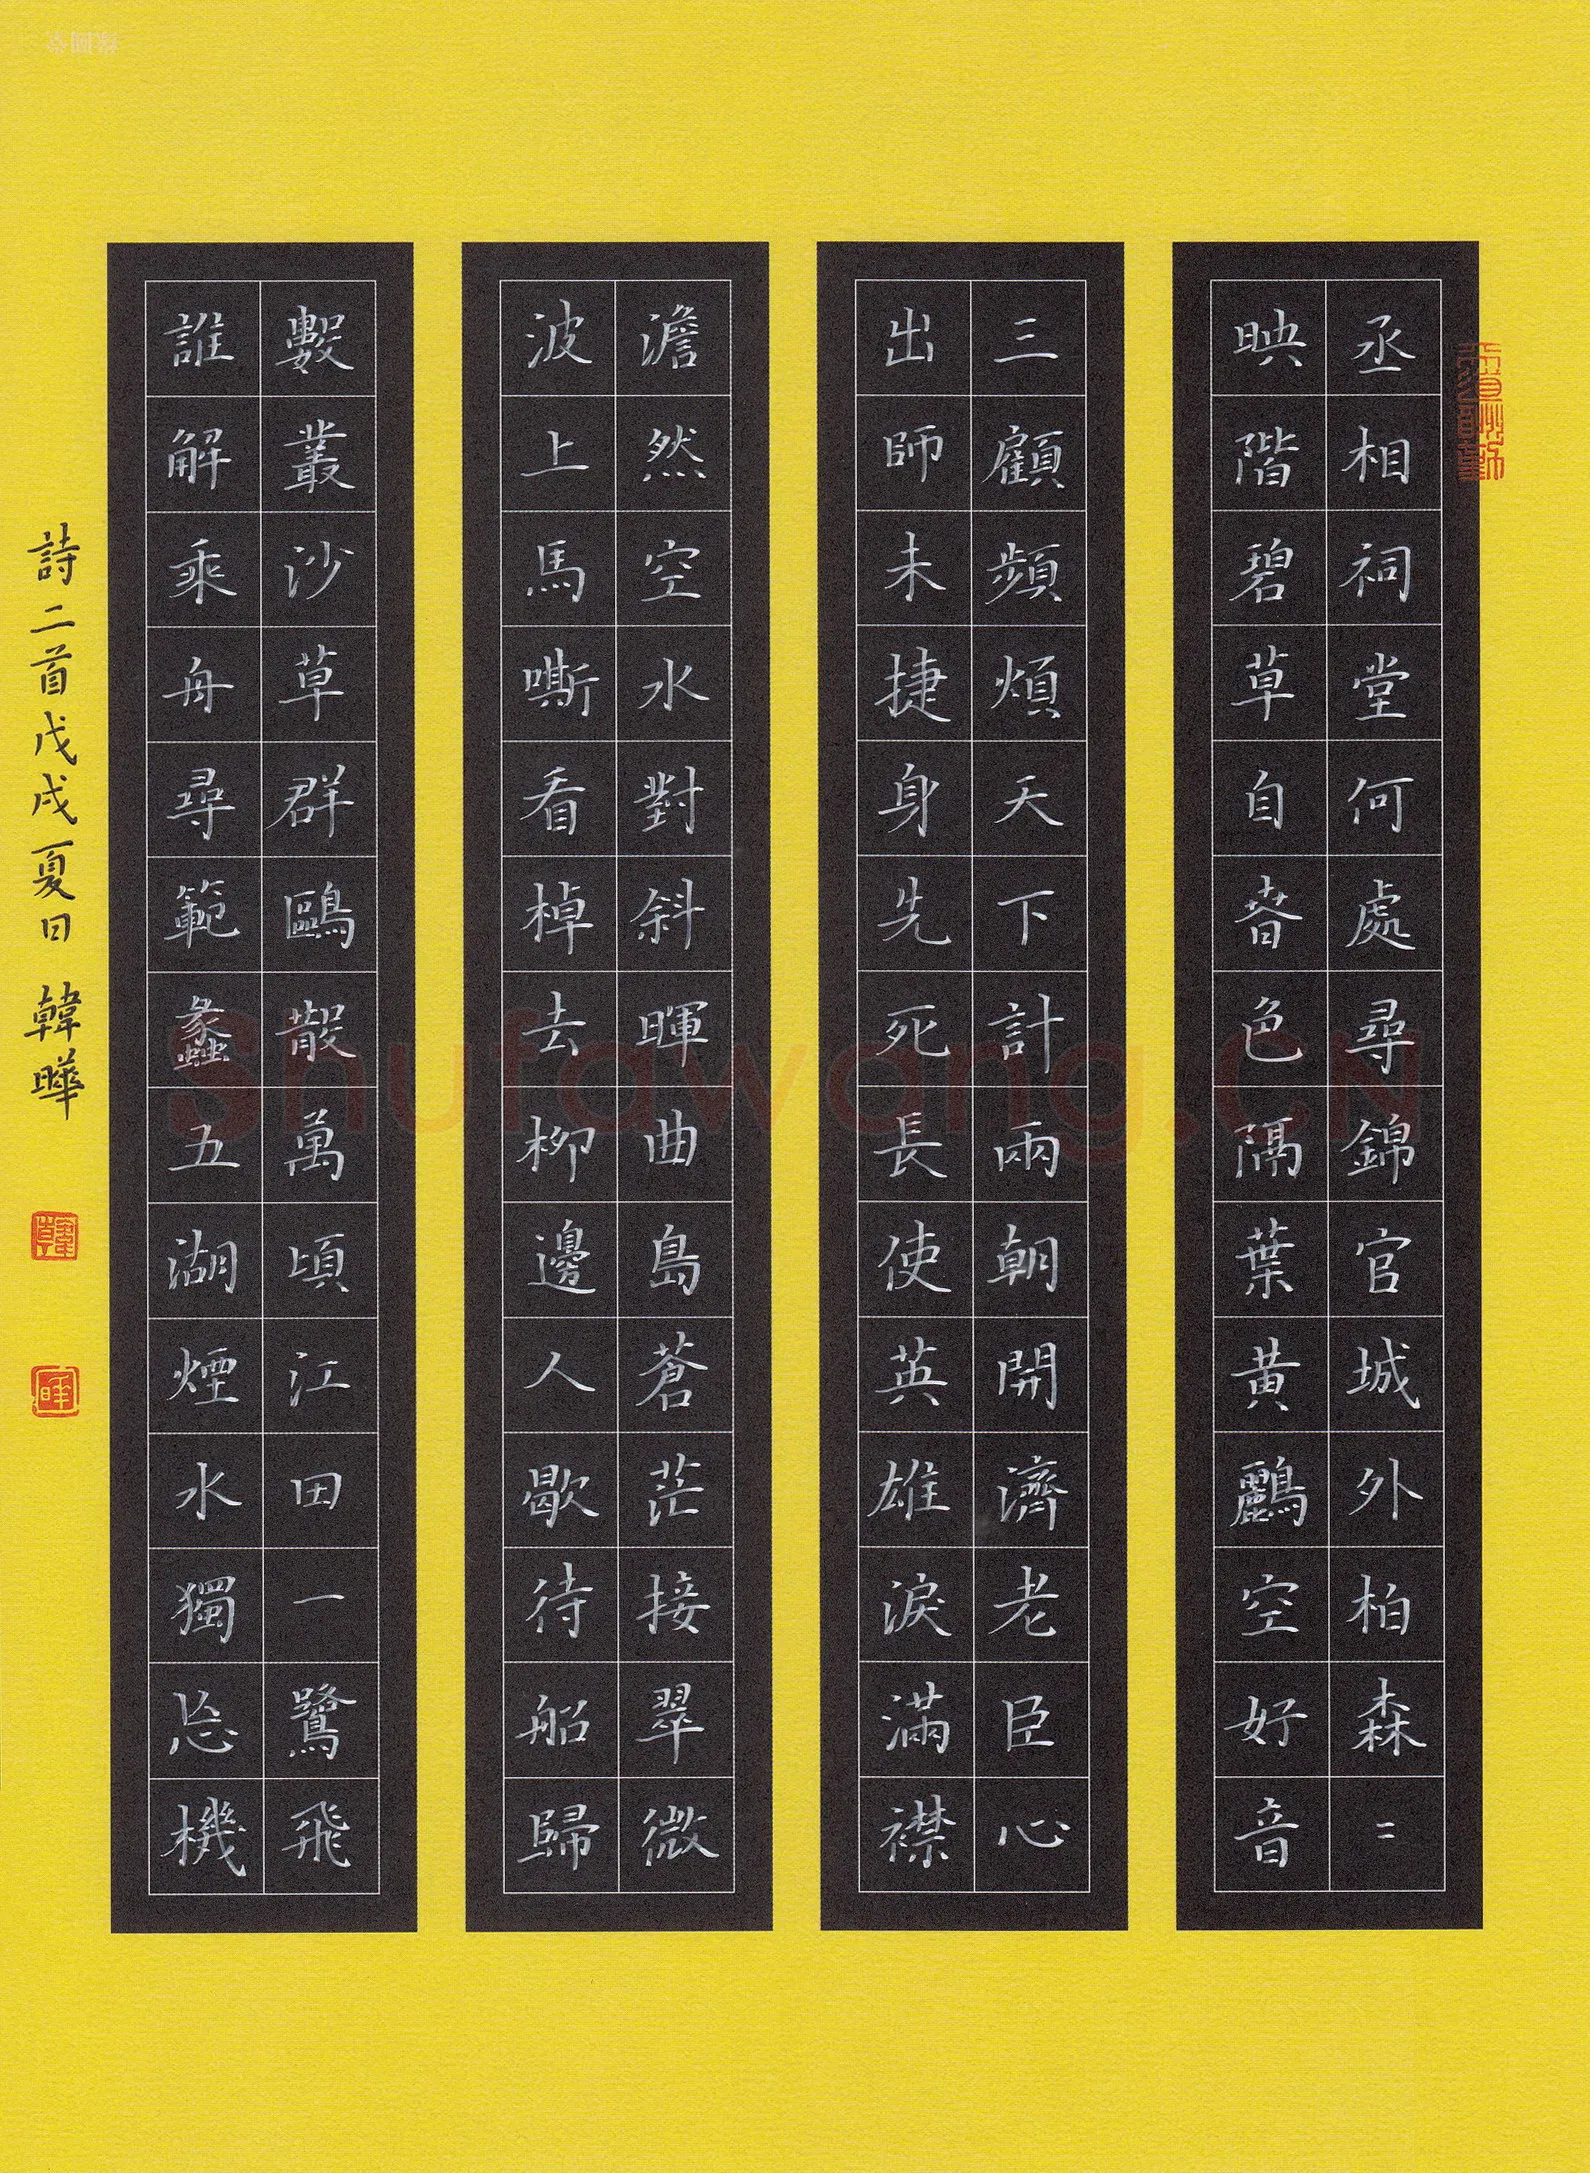 丞相祠堂何處尋錦官城外柏森二
映階碧草自春色隔葉黃鸝空好音
三顧頻煩天下計兩朝開濟老臣心
出師未捷身先死長使英雄淚滿襟
澹然空水對斜暉曲島蒼茫接翠微
波上馬嘶看棹去柳邊人歇待船歸
數叢沙草群鷗散萬頃江田一鷺飛
誰解乘舟尋範蠡五湖煙水獨忘機
詩二首戊戌夏日 韓曄
Shufawang.CN